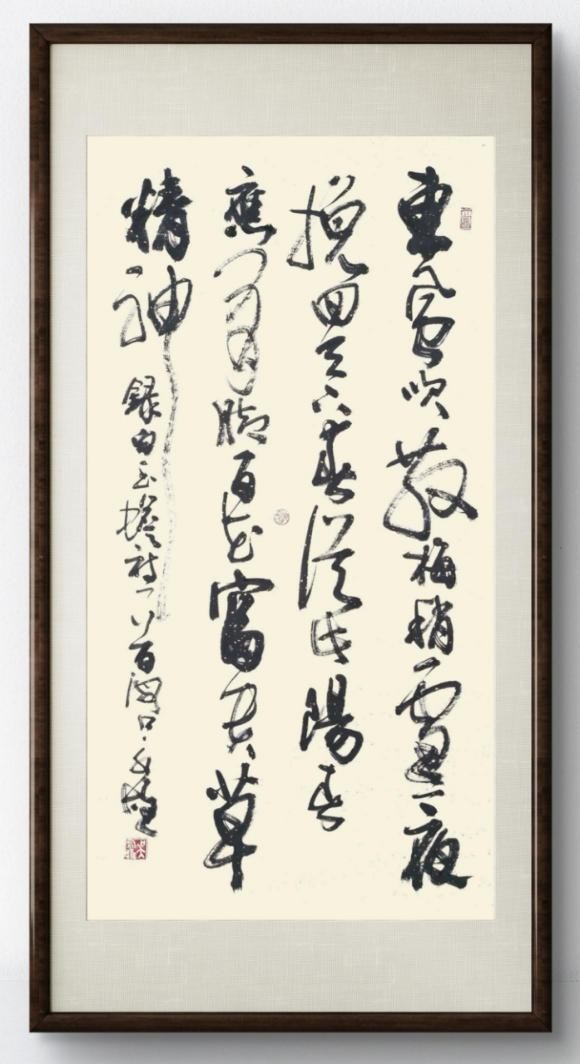 東風吹散梅梢雪一夜
挽回天下春從此陽春
應有脚百花富貴草
精神 錄白玉蟾詩一首